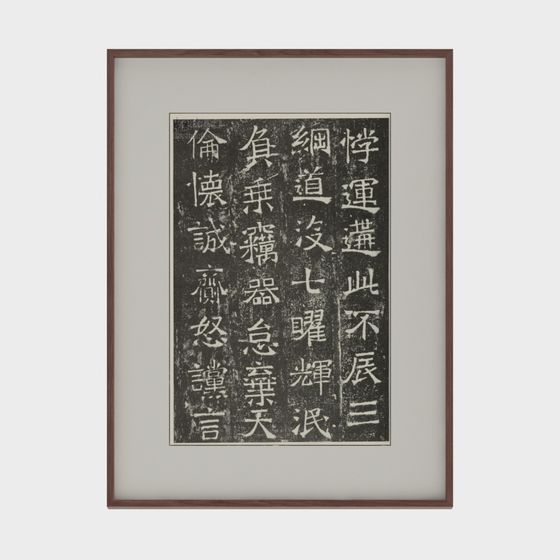 悖運遘此不辰三
綱道沒七曜輝泯
負乘竊器怠棄天
倫懷誠齎怒讜言